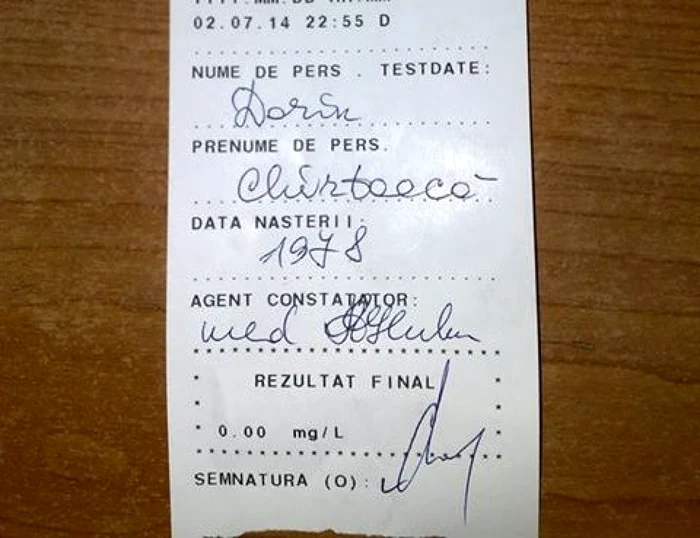 02.07.14 22:55 D
NUME DE PERS . TESTDATE:
Dorin
PRENUME DE PERS.
Chirtoacă
DATA NASTERII:
1978
AGENT CONSTATATOR:
med
REZULTAT FINAL
0.00 mg/L
SEMNATURA (O):